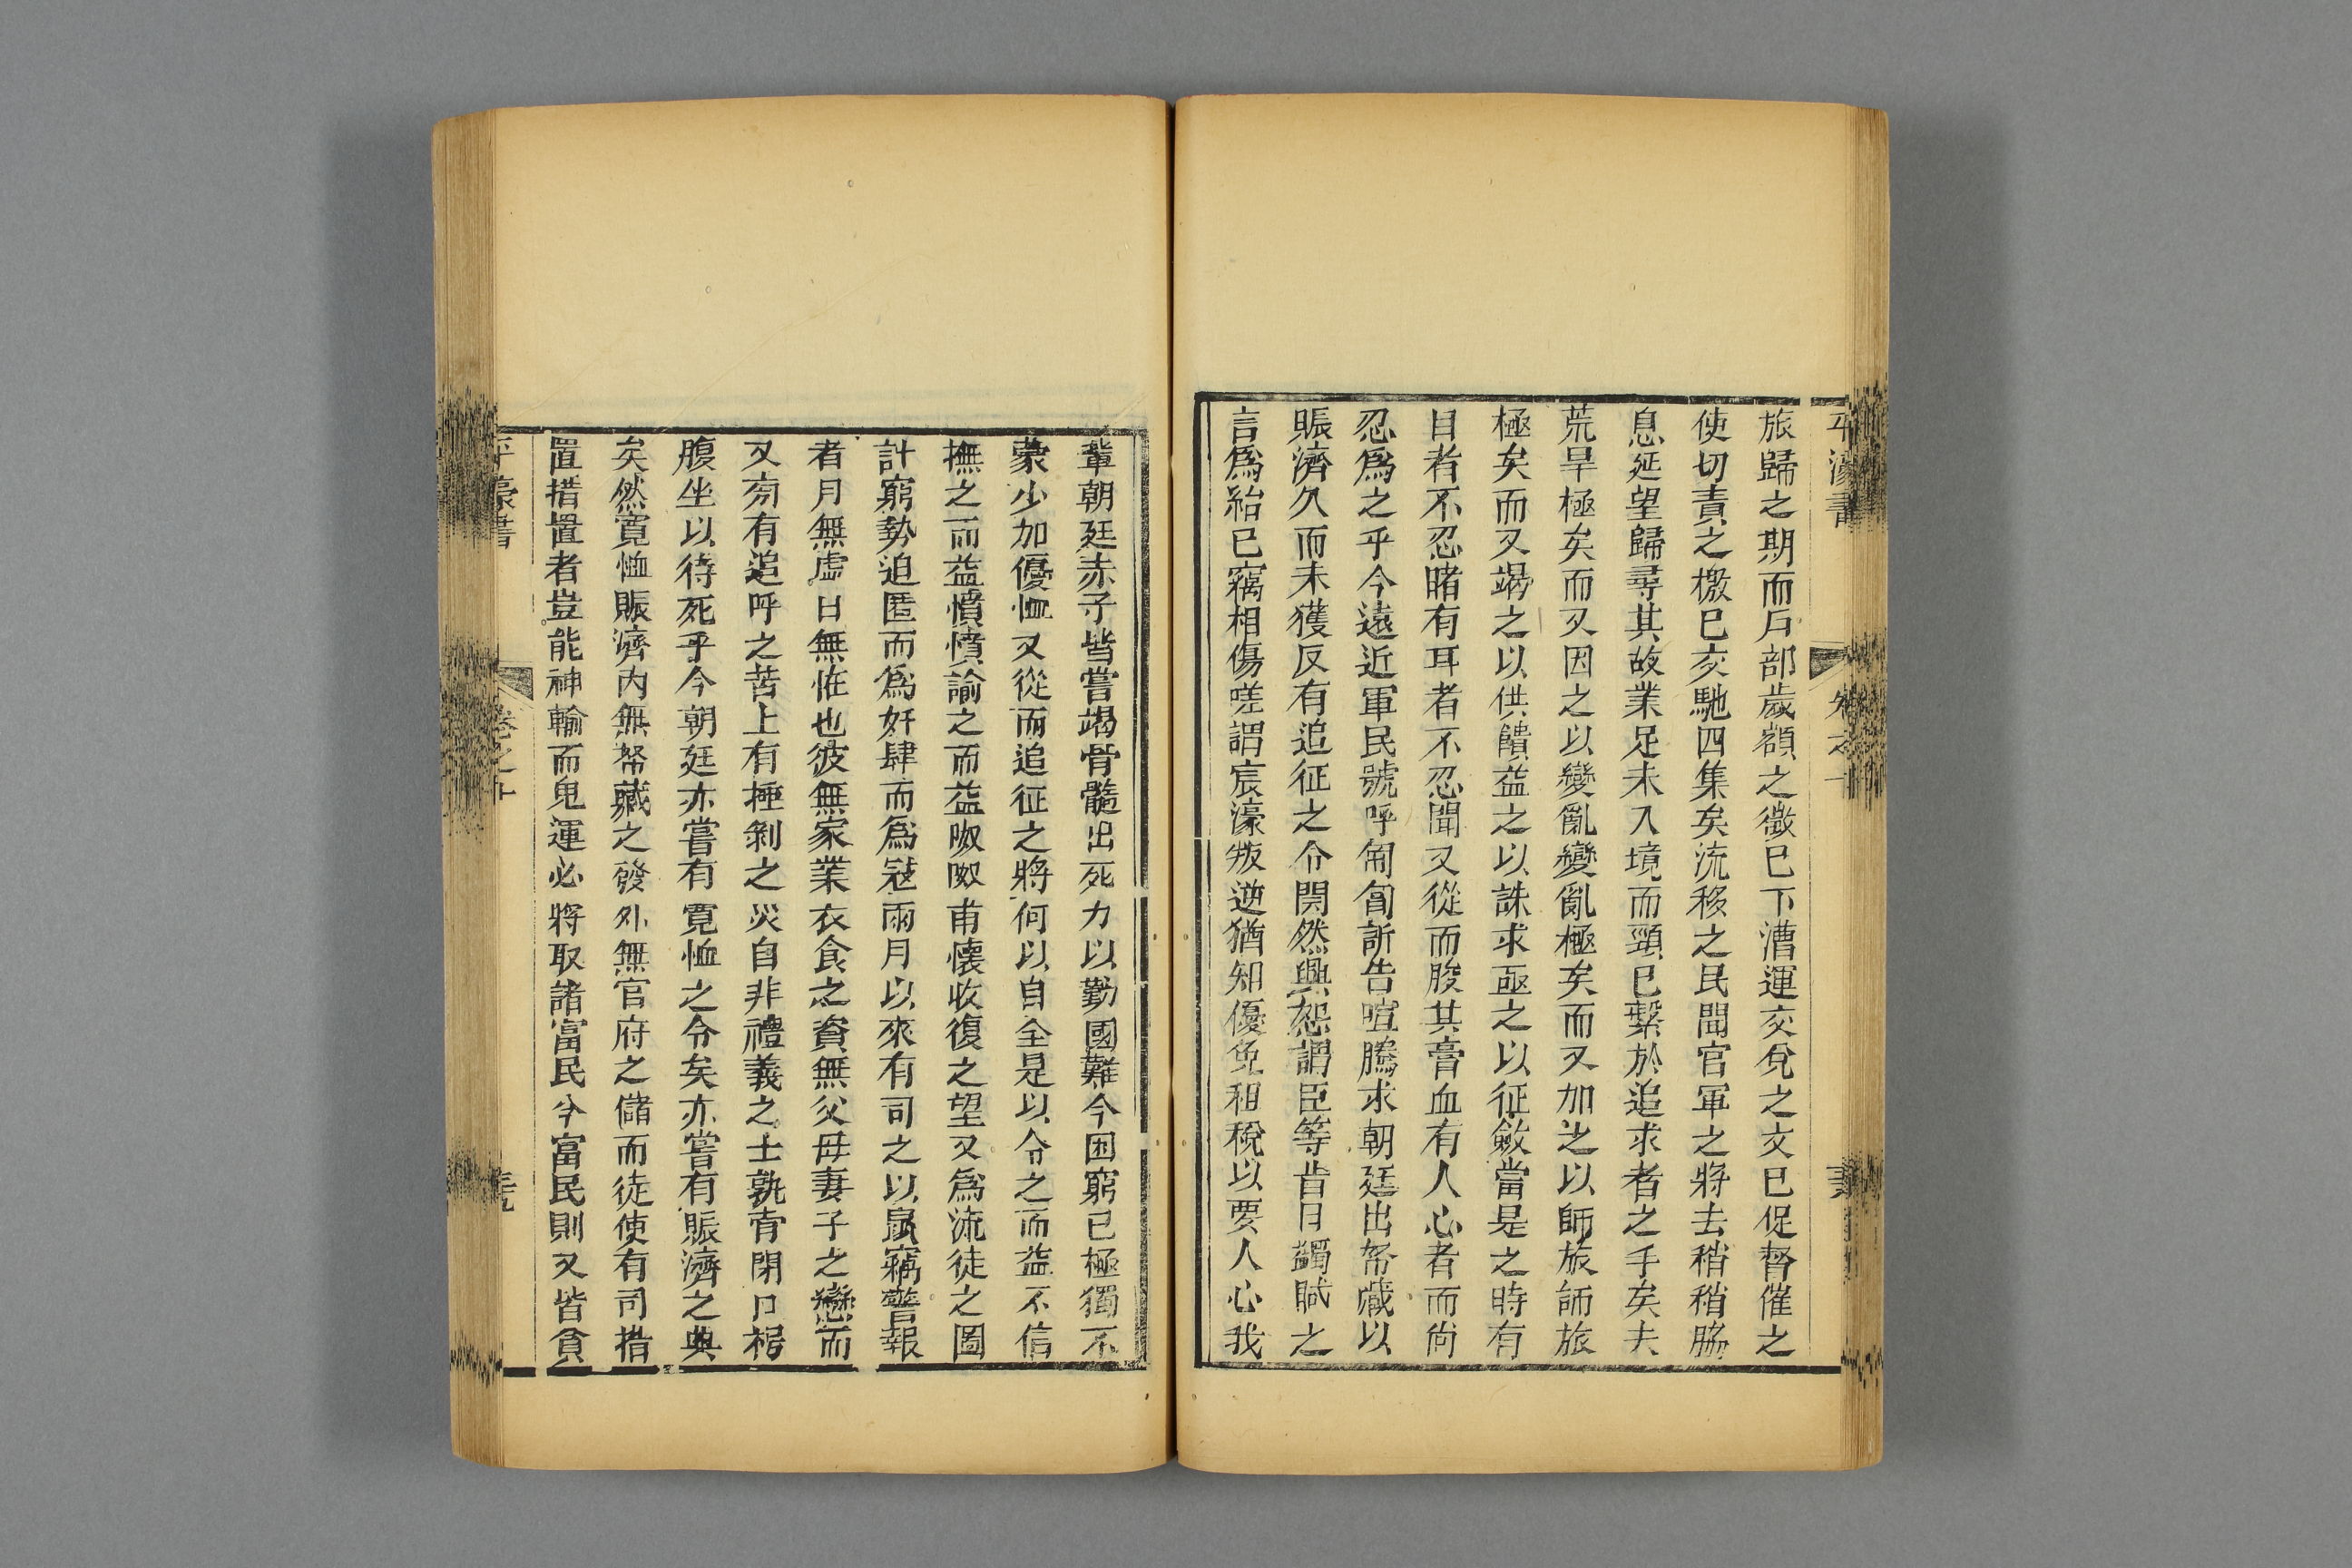 平濠書 卷之十
旅歸之期而戶部歲額之徵已下漕運交兌之文已促督催之
使切責之檄已交馳四集矣流移之民聞官軍之將去稍稍脇
息延望歸尋其故業足未入境而頸已繫於追求者之手矣夫
荒旱極矣而又因之以變亂變亂極矣而又加之以師旅師旅
極矣而又竭之以供饋益之以誅求亟之以征斂當是之時有
目者不忍睹有耳者不忍聞又從而朘其膏血有人心者而尚
忍爲之乎今遠近軍民號呼匍匐訴告喧騰求朝廷出帑藏以
賑濟久而未獲反有追征之令閧然興怨謂臣等昔日蠲賦之
言爲紿已竊相傷嗟謂宸濠叛逆猶知優免租稅以要人心我
輩朝廷赤子皆嘗竭骨髓出死力以勤國難今困窮已極獨不
蒙少加優恤又從而追征之將何以自全是以令之而益不信
撫之而益憤憤諭之而益呶呶甫懷收復之望又爲流徒之圖
計窮勢迫匿而爲奸肆而爲冦兩月以來有司之以鼠竊警報
者月無虛日無恠也彼無家業衣食之資無父母妻子之戀而
又旁有追呼之苦上有捶剝之災自非禮義之士孰肯閉口枵
腹坐以待死乎今朝廷亦嘗有寬恤之令矣亦嘗有賑濟之典
矣然寬恤賑濟內無帑藏之發外無官府之儲而徒使有司措
置措置者豈能神輸而鬼運必將取諸富民今富民則又皆貧
平濠書 卷之十